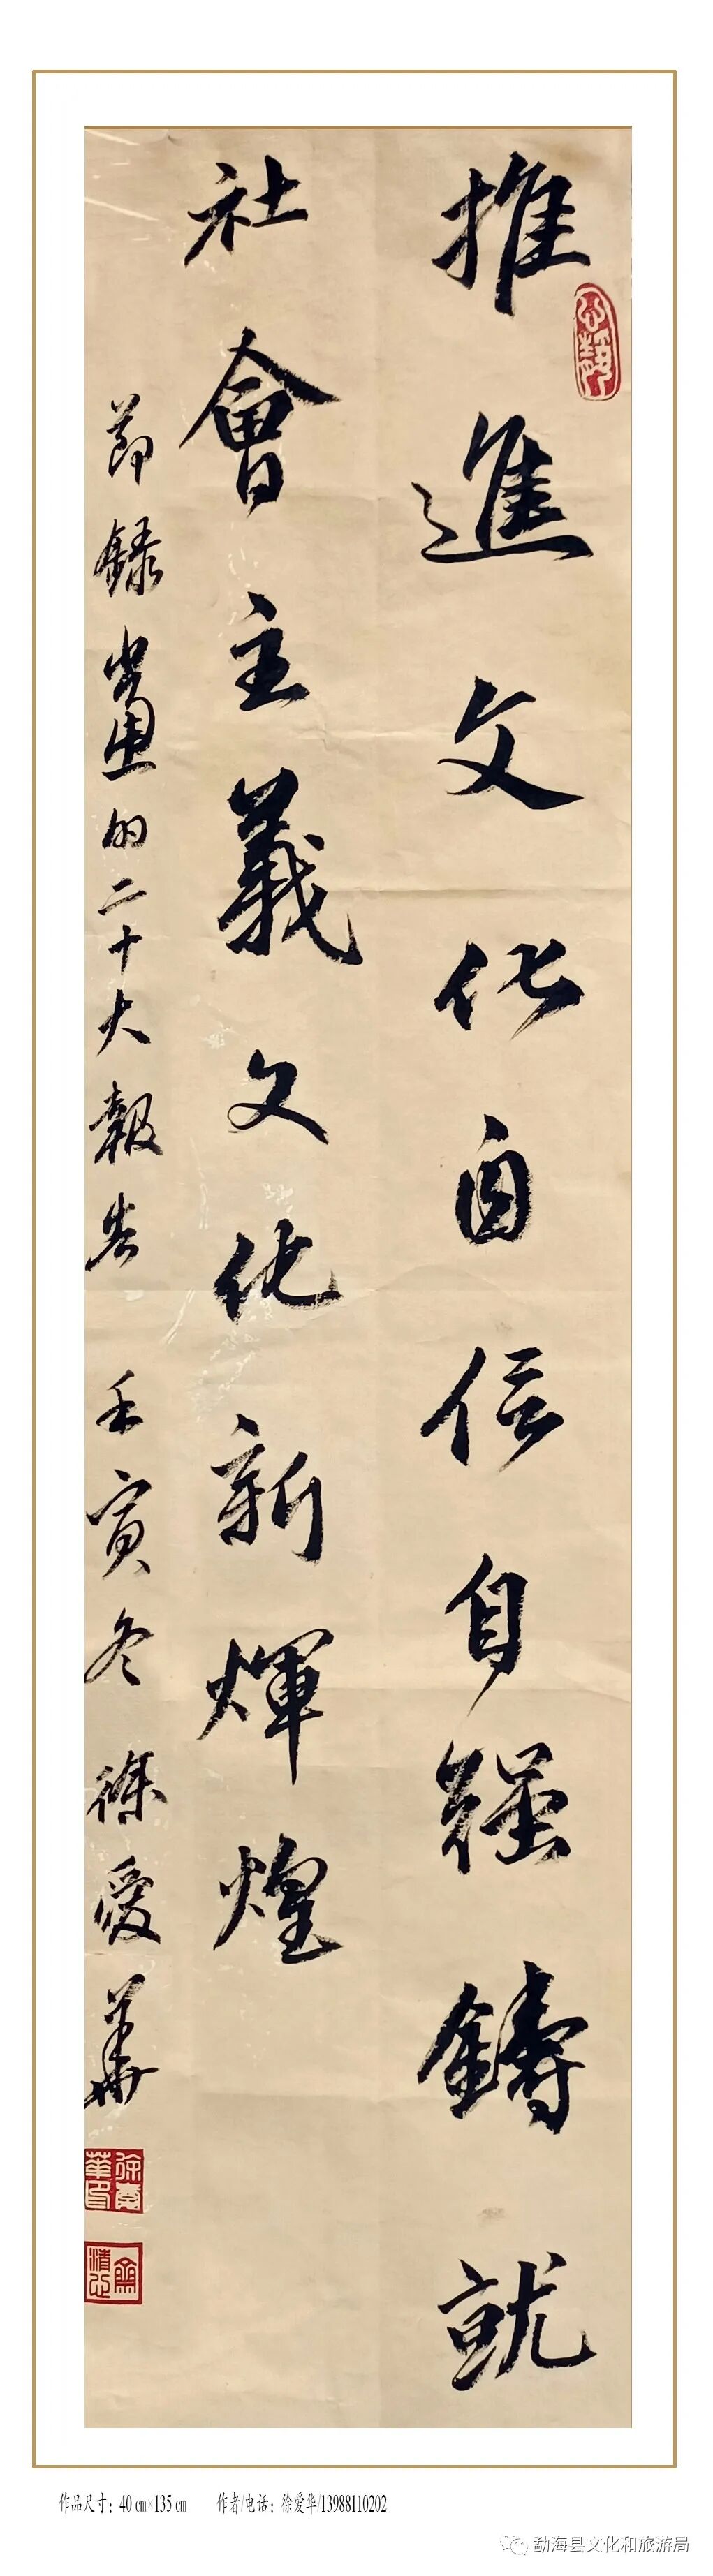 推進文化自信自強鑄就
社會主義文化新輝煌
節錄黨的二十大報告 壬寅冬 徐愛華
心静
徐愛華印
清心齋
作品尺寸：40 cm×135 cm 作者/电话：徐爱华/13988110202
勐海县文化和旅游局